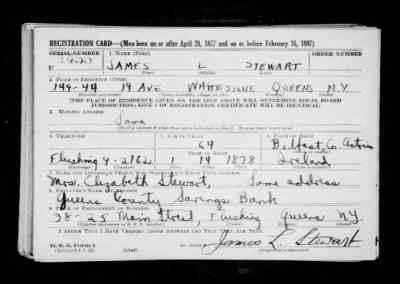 REGISTRATION CARD—(Men born on or after April 28, 1877 and on or before February 16, 1897)
SERIAL NUMBER 1. NAME (Print) ORDER NUMBER
U JAMES L STEWART
(First) (Middle) (Last)
2. PLACE OF RESIDENCE (Print)
149-44 19 AVE WHITESTONE QUEENS N.Y
(Number and street) (Town, township, village, or city) (County) (State)
[THE PLACE OF RESIDENCE GIVEN ON THE LINE ABOVE WILL DETERMINE LOCAL BOARD
JURISDICTION; LINE 2 OF REGISTRATION CERTIFICATE WILL BE IDENTICAL]
3. MAILING ADDRESS
Same
[Mailing address if other than place indicated on line 2. If same insert word same]
4. TELEPHONE 5. AGE IN YEARS 6. PLACE OF BIRTH
64 Belfast, Co. Antrim
DATE OF BIRTH (Town or county)
Flushing 9-2162 1 14 1878 Ireland
(Exchange) (Number) (Mo.) (Day) (Yr.) (State or country)
7. NAME AND ADDRESS OF PERSON WHO WILL ALWAYS KNOW YOUR ADDRESS
Mrs. Elizabeth Stewart, Same address
8. EMPLOYER'S NAME AND ADDRESS
Queens County Savings Bank
9. PLACE OF EMPLOYMENT OR BUSINESS
38-25 Main Street, Flushing Queens N.Y.
(Number and street or R. F. D. number) (Town) (County) (State)
I AFFIRM THAT I HAVE VERIFIED ABOVE ANSWERS AND THAT THEY ARE TRUE.
D. S. S. Form 1
(Revised 4-1-42) (over) James L. Stewart